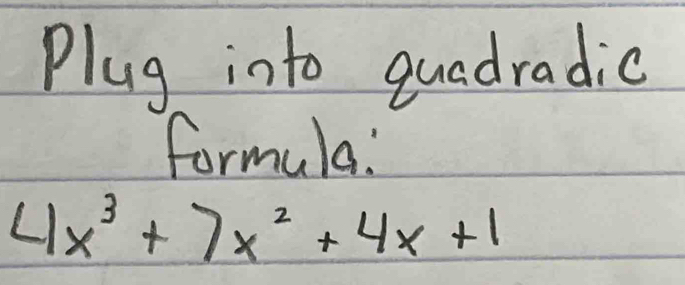 Plug into quadradic
formula:
4x³ + 7x² + 4x + 1